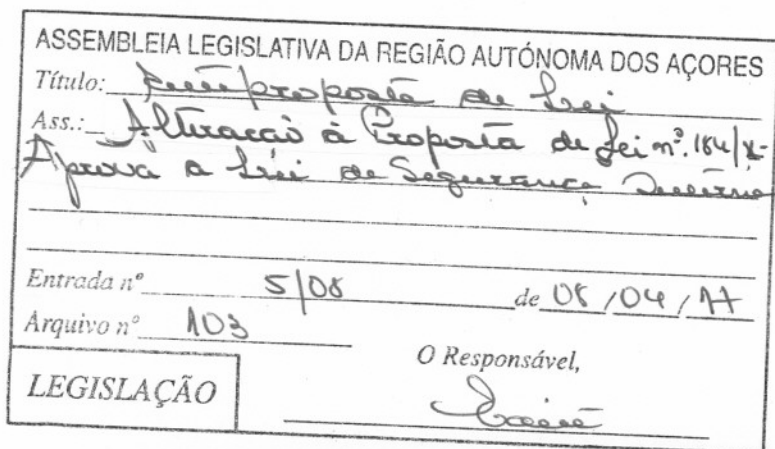 ASSEMBLEIA LEGISLATIVA DA REGIÃO AUTÓNOMA DOS AÇORES
Título: Anteproposta de Lei
Ass.: Alteração à Proposta de Lei nº. 184/X-
Aprova a Lei de Segurança Interna
Entrada nº 5/08 de 08/04/17
Arquivo nº 103
O Responsável,
LEGISLAÇÃO